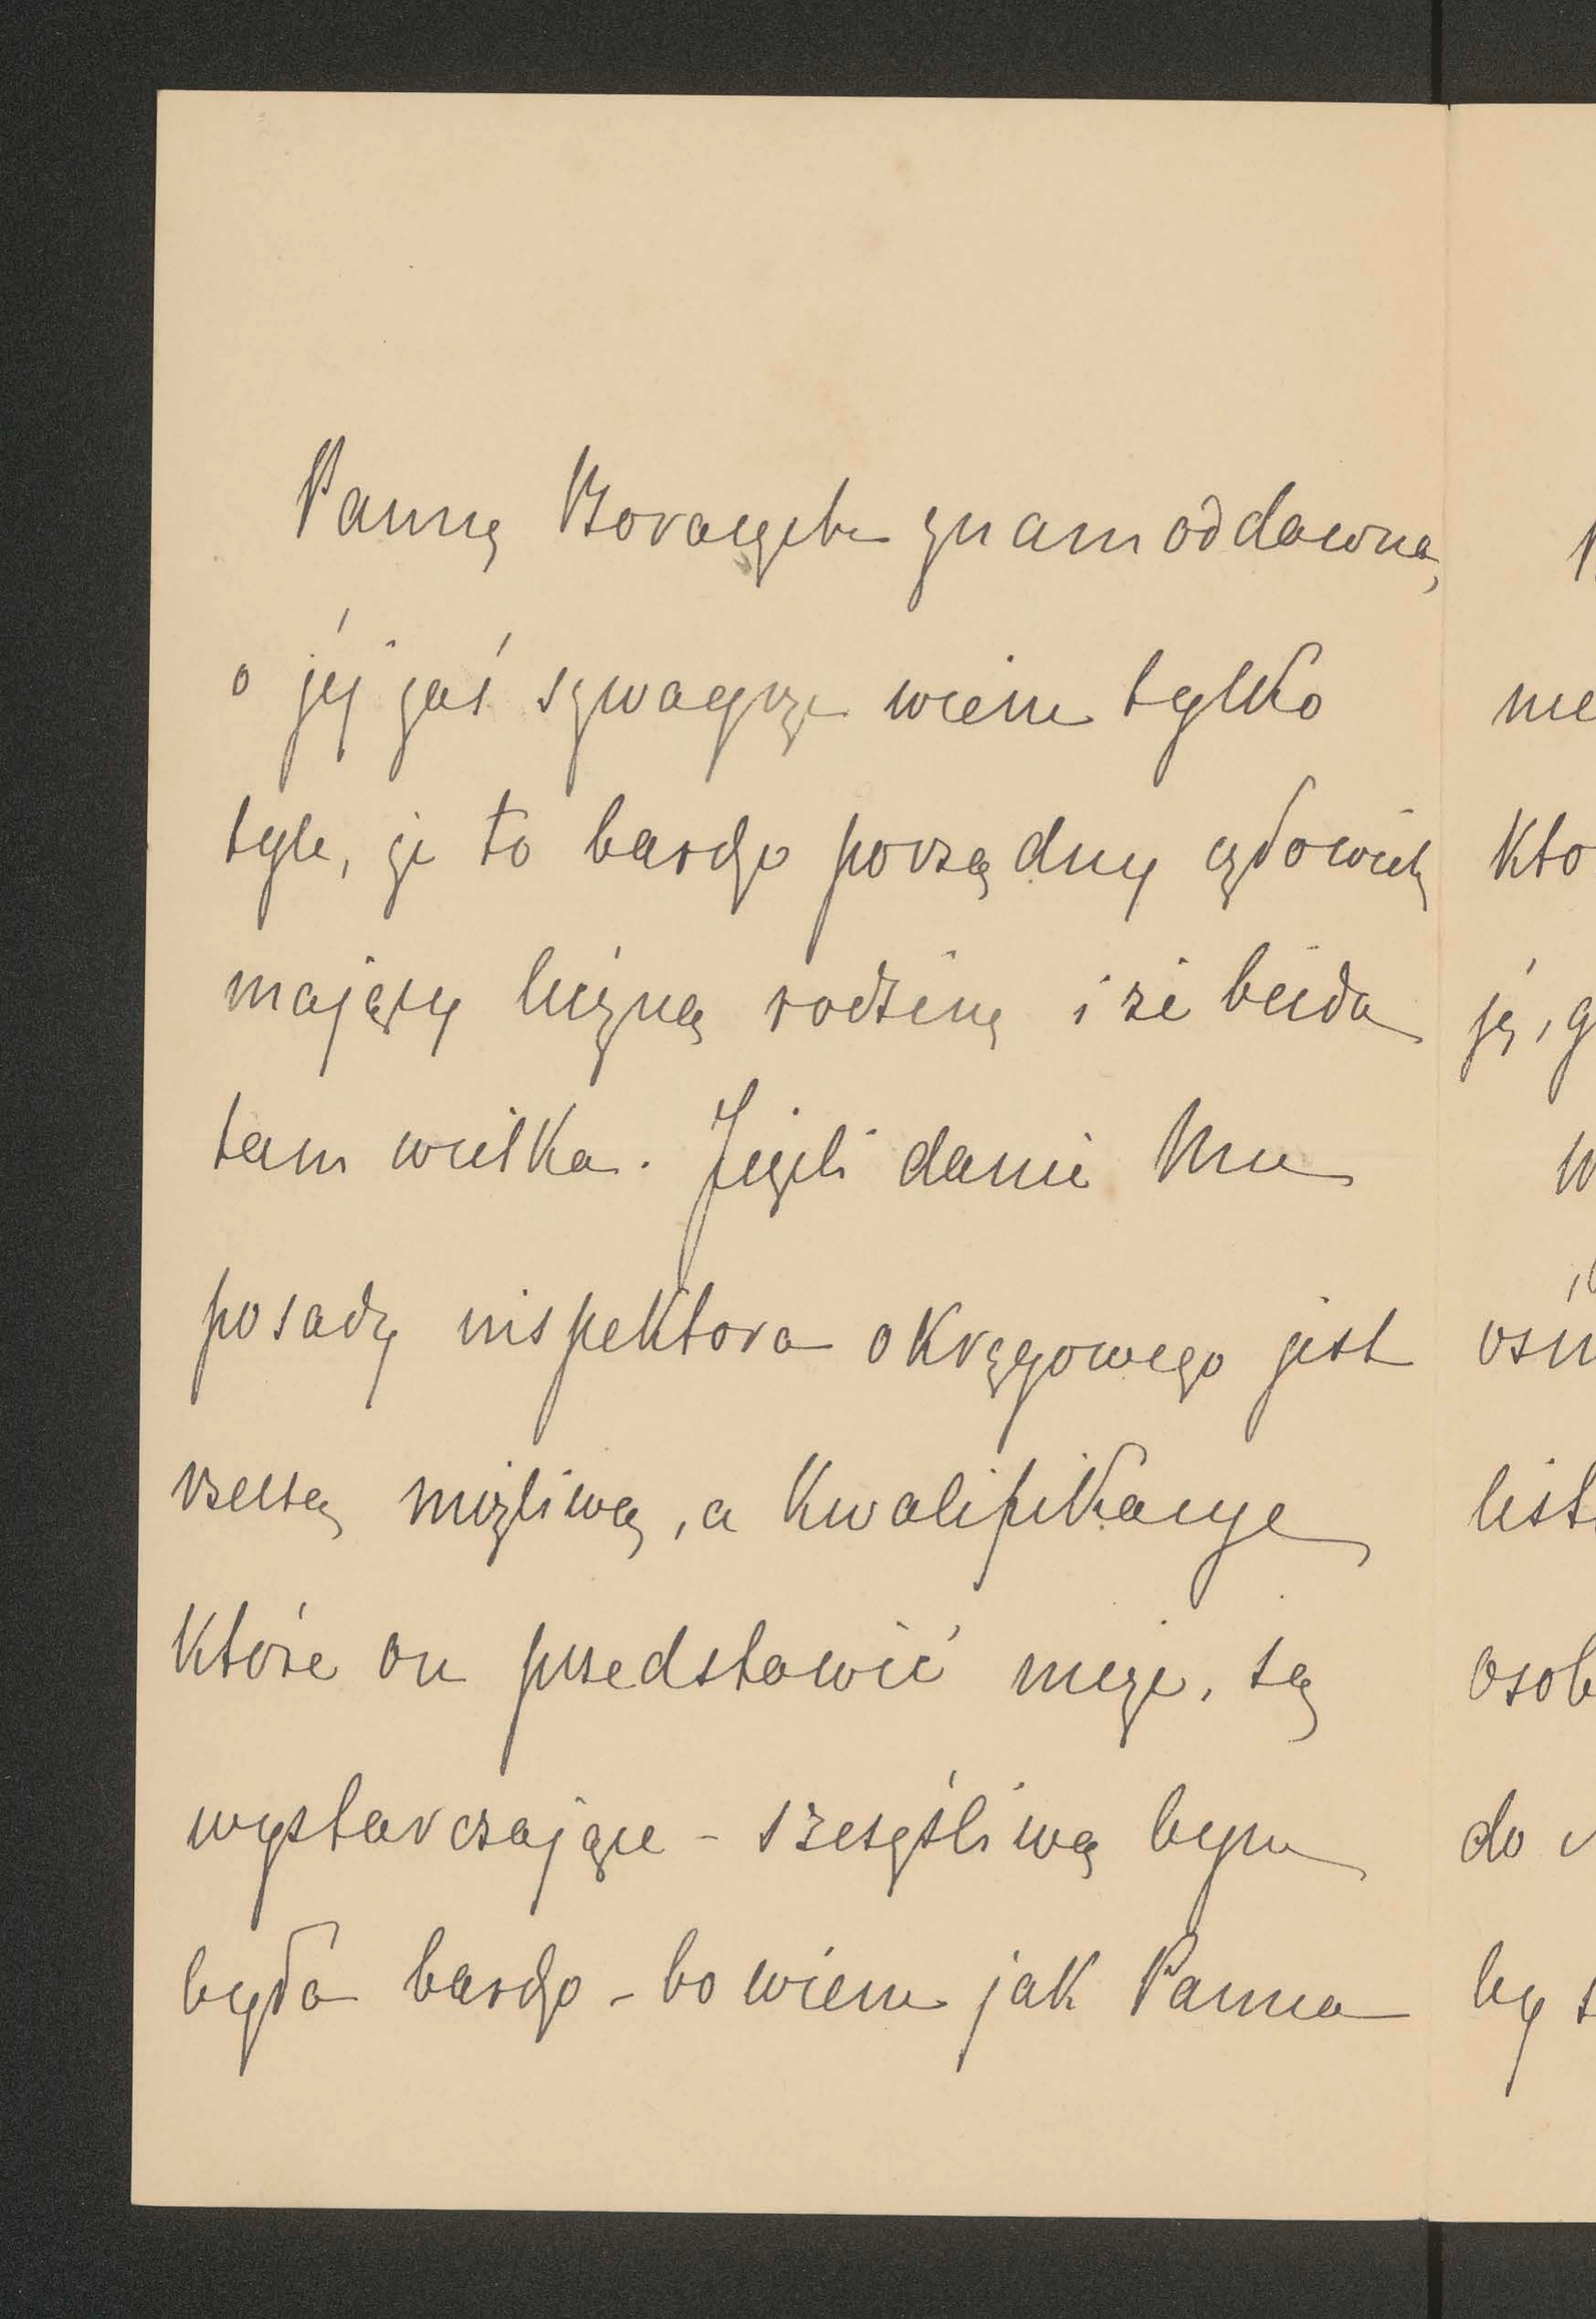 Pannę znam od dawna,
o jéj zaś szwagrze wiem tylko
tyle, że to bardzo porządny człowiek
mający liczną rodzinę i że bieda
tam wielka. Jeżeli danie Mu
posady inspektora okręgowego jest
rzeczą możliwą, a kwalifikacye
które on przedstawić może, są
wystarczające - szczęśliwą bym
była bardzo - bo wiem jak Panna
me
Kto
ją, g
W
osm
list
osob
do
by